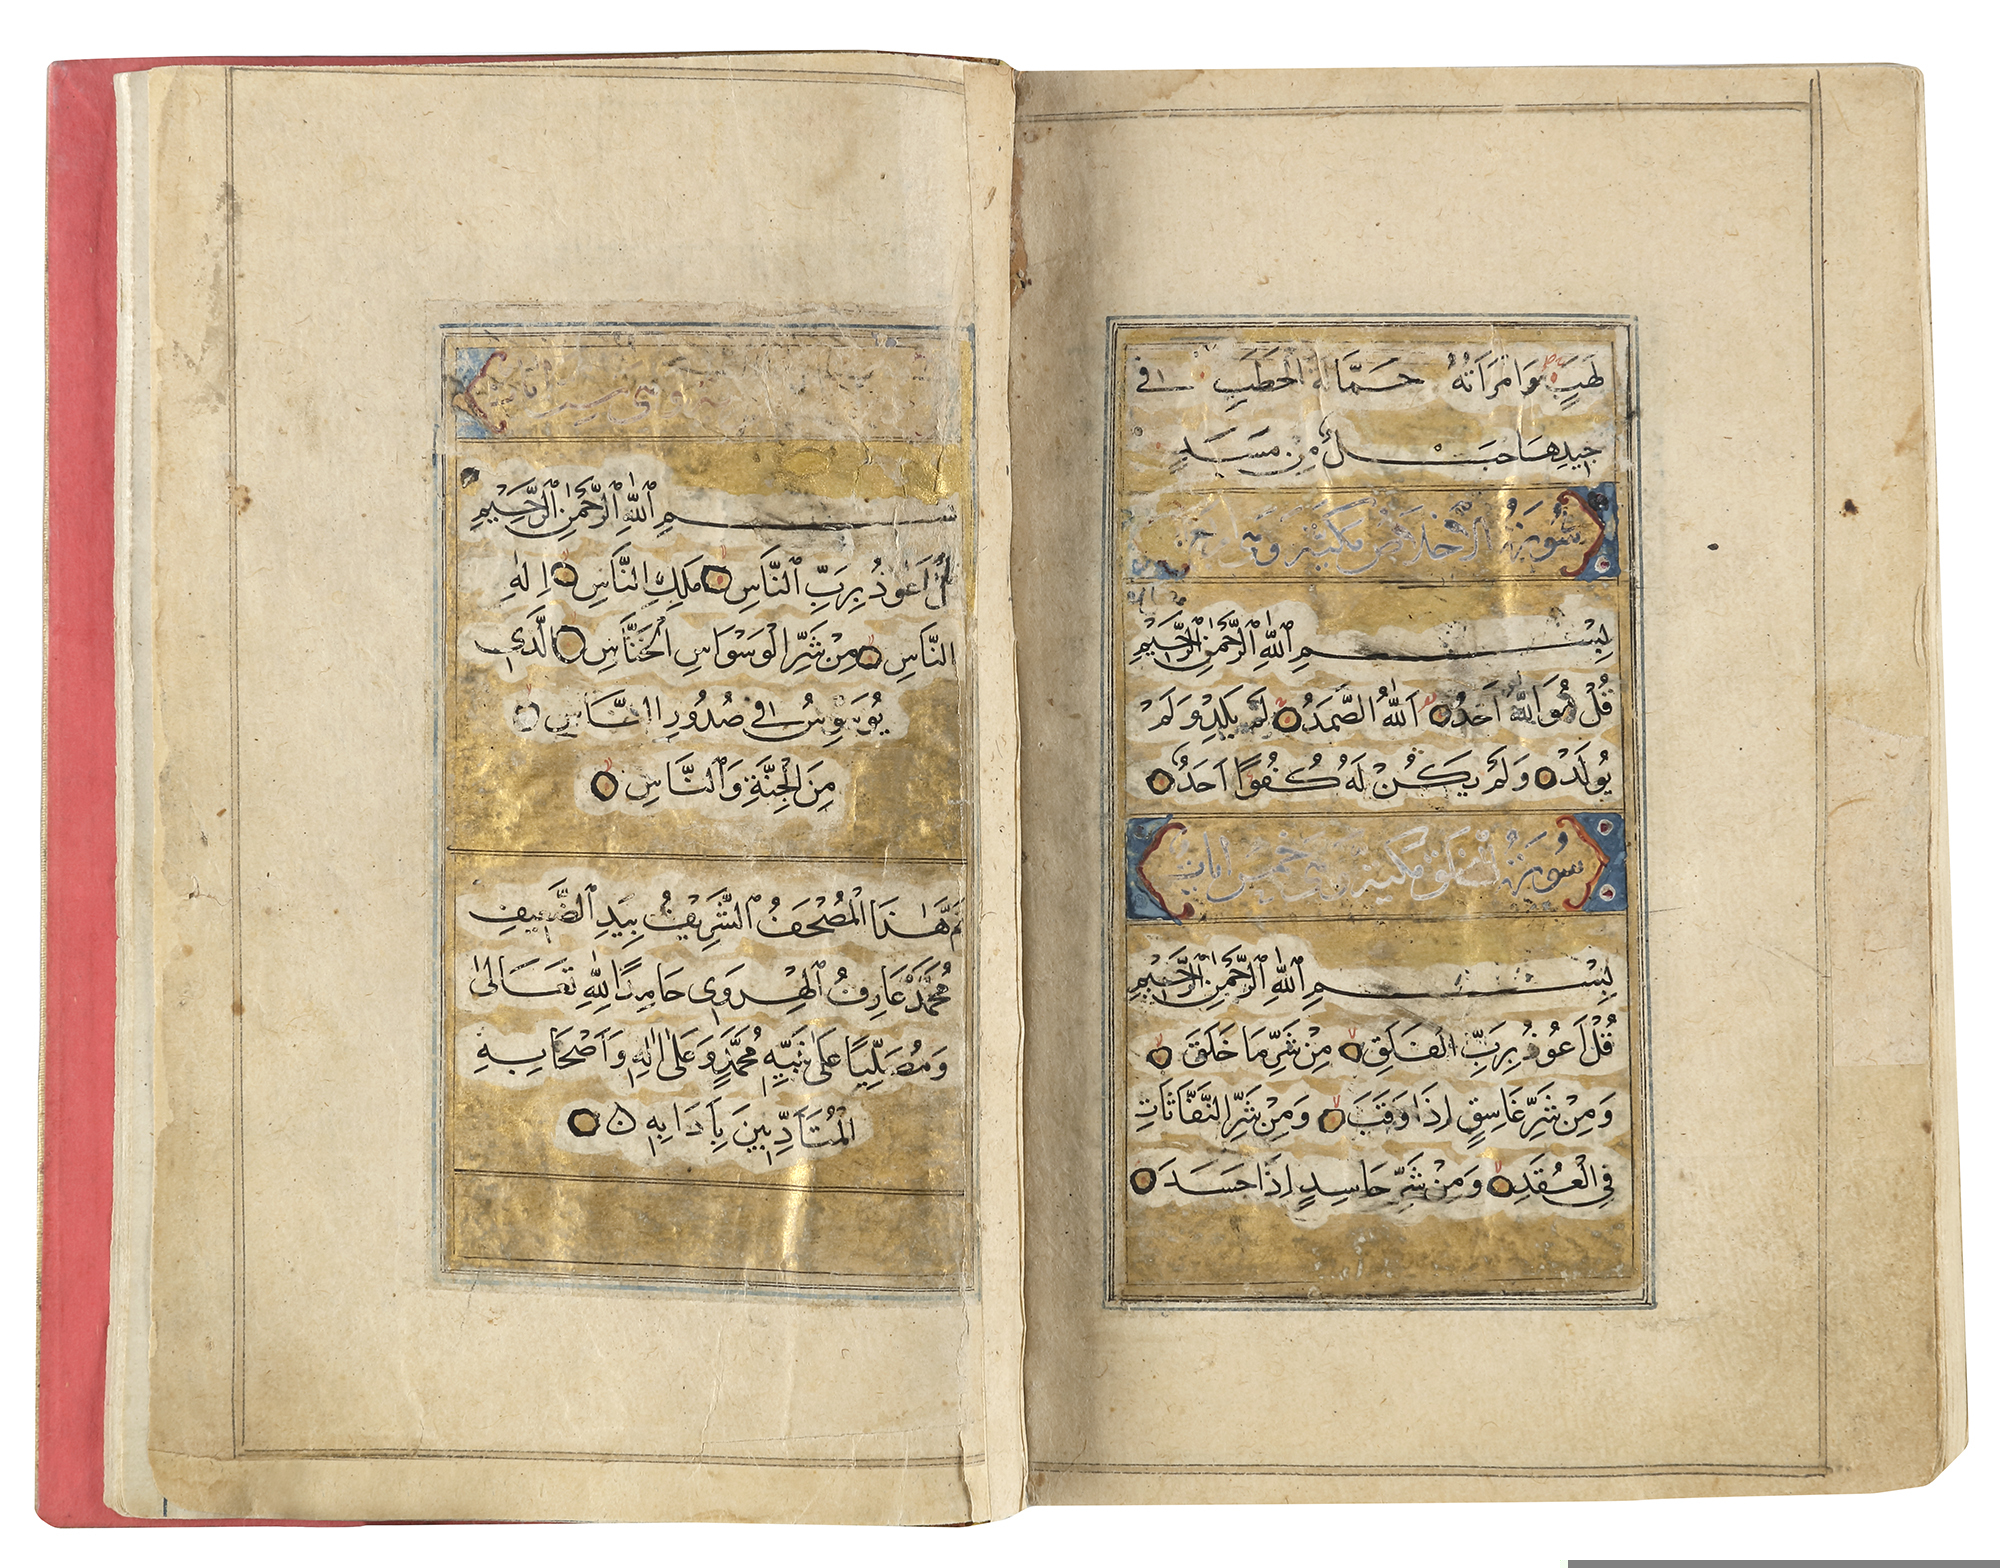 لَهَبٍ وَامْرَأَتُهُ حَمَّالَةَ الْحَطَبِ فِي
جِيدِهَا حَبْلٌ مِنْ مَسَدٍ
سُورَةُ الْأِخْلَاصِ مَكِيَّة وَهي
بِسْمِ اللَّهِ الرَّحْمٰنِ الرَّحِيمِ
قُلْ هُوَ اللَّهُ أَحَدٌ اَللَّهُ الصَّمَدُ لَمْ يَلِدْ وَلَمْ
يُولَدْ وَلَمْ يَكُنْ لَهُ كُفُوًا أَحَدٌ
سُورَةُ الفلق مكية وهي خمس ايات
بِسْمِ اللَّهِ الرَّحْمٰنِ الرَّحِيمِ
قُلْ اَعُوذُ بِرَبِّ الْفَلَقِ مِنْ شَرِّ مَا خَلَقَ
وَمِنْ شَرِّ غَاسِقٍ اِذَا وَقَبَ وَمِنْ شَرِّ النَّفَّاثَاتِ
فِي الْعُقَدِ وَمِنْ شَرِّ حَاسِدٍ اِذَا حَسَدَ
بِسْمِ اللَّهِ الرَّحْمٰنِ الرَّحِيمِ
قُلْ اَعُوذُ بِرَبِّ النَّاسِ مَلِكِ النَّاسِ اِلٰهِ
النَّاسِ مِنْ شَرِّ الْوَسْوَاسِ الْخَنَّاسِ الَّذِي
يُوَسْوِسُ فِي صُدُورِ النَّاسِ
مِنَ الْجِنَّةِ وَالنَّاسِ
تَمَّ هٰذَا الْمُصْحَفُ الشَّرِيفُ بِيَدِ الضَّعِيفِ
مُحَمَّدْ عَارِفُ الْهِرَوِي حَامِدًا لِلَّهِ تَعَالَىٰ
وَمُصَلِّيًا عَلَىٰ نَبِيِّهِ مُحَمَّدٍ وَعَلَىٰ اٰلِهِ وَاَصْحَابِهِ
الْمُتَأَدِّبِينَ بِآدَابِهِ